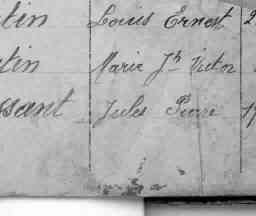 tin Louis Ernest 2
tin Marie Jh Victor
ssant Jules Pierre 19